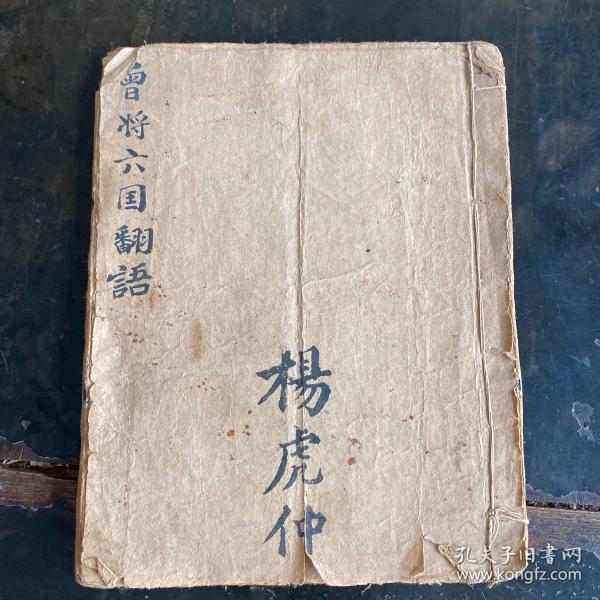 曾将六国翻語
楊虎仲
孔夫子旧書网
www.kongfz.com